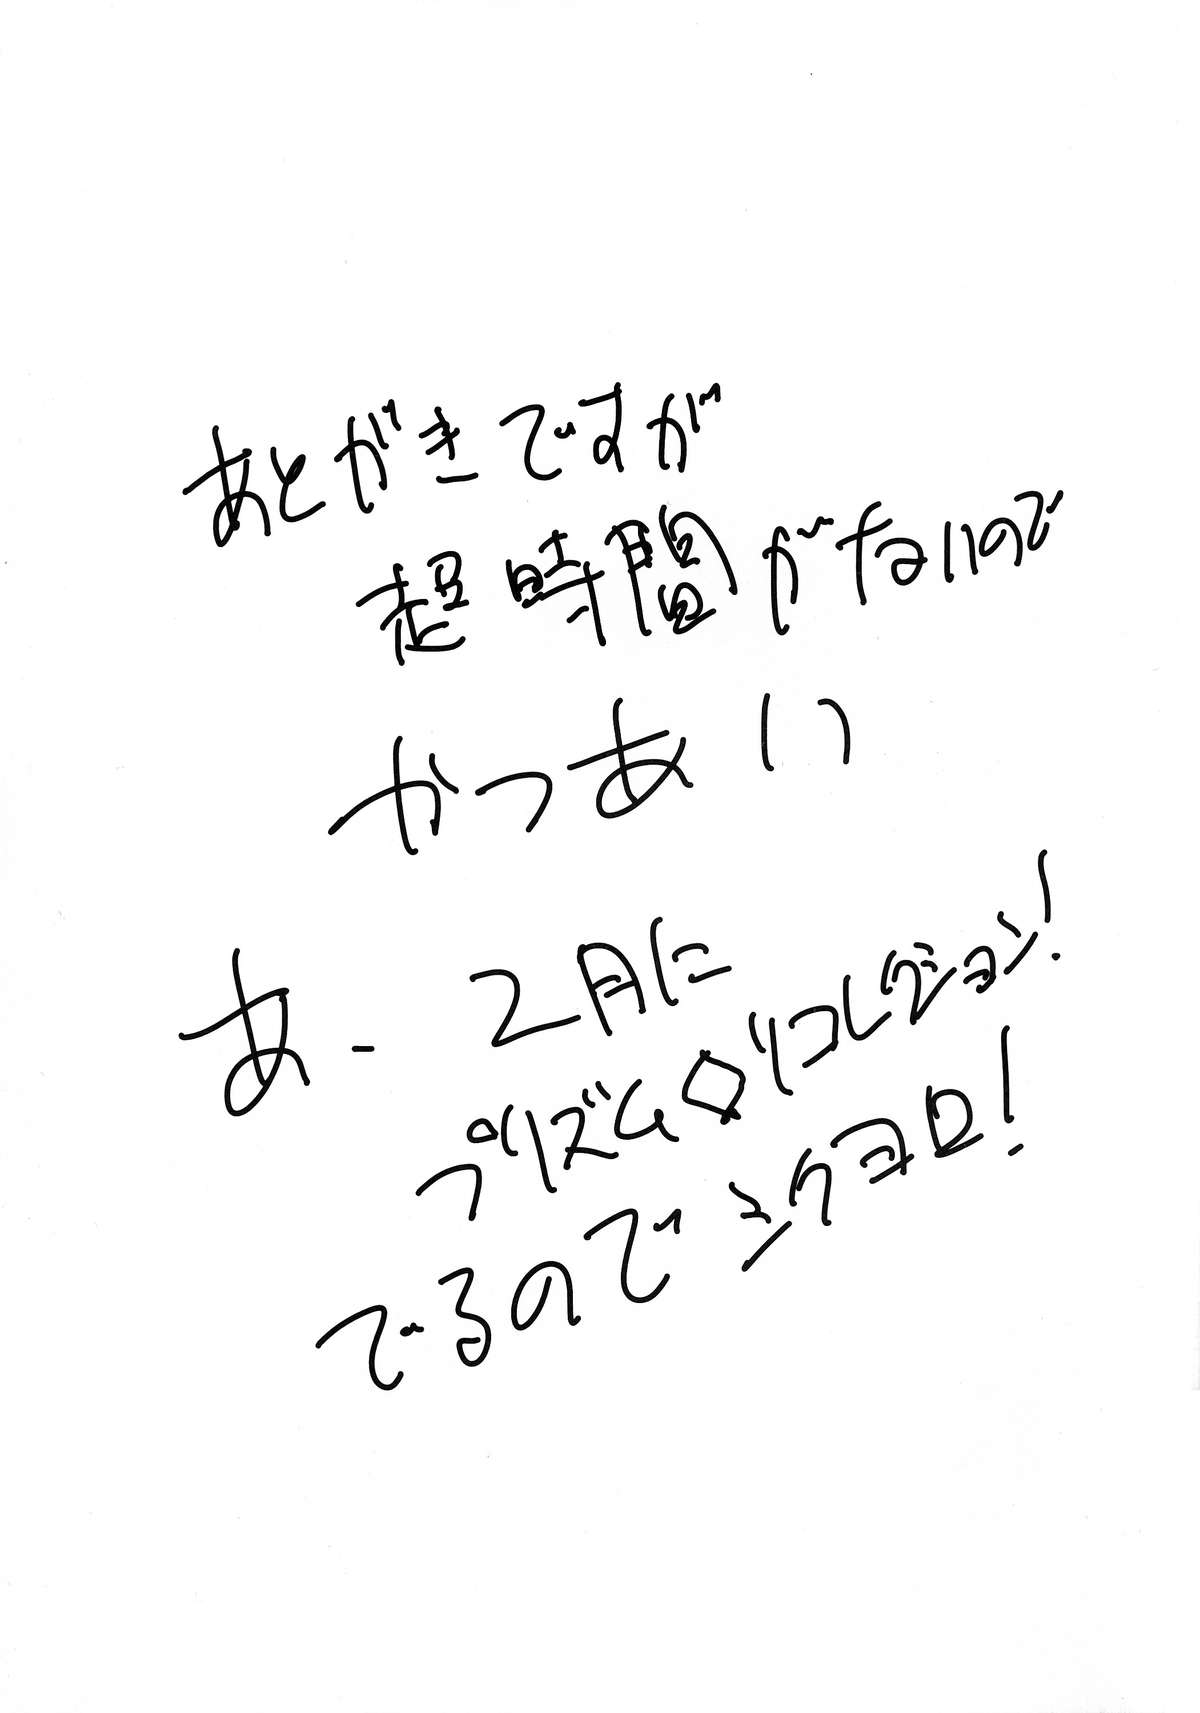 あとがきですが
超時間がないので
かつあい
あ、2月に
プリズム◇リコレクション!
でるのでヨクヨロ!